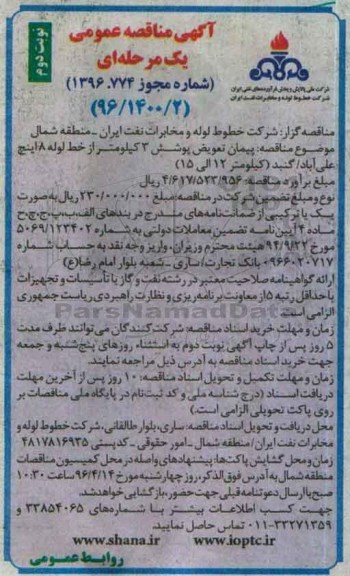 نوبت دوم
آگهی مناقصه عمومی
یک مرحله‌ای
(شماره مجوز ۱۳۹۶.۷۷۴)
(۹۶/۱۴۰۰/۲)
شرکت ملی پالایش و پخش فرآورده‌های نفتی ایران
شرکت خطوط لوله و مخابرات نفت ایران
مناقصه گزار: شرکت خطوط لوله و مخابرات نفت ایران ـ منطقه شمال
موضوع مناقصه: پیمان تعویض پوشش ۳ کیلومتر از خط لوله ۸ اینچ
علی‌آباد/ گنبد (کیلومتر ۱۲ الی ۱۵)
مبلغ برآورد مناقصه: ۴/۶۱۷/۵۳۳/۹۵۶ ریال
نوع و مبلغ تضمین شرکت در مناقصه: مبلغ ۲۳۰/۰۰۰/۰۰۰ ریال به صورت
یک یا ترکیبی از ضمانت‌نامه‌های مندرج در بندهای الف، ب، پ، ج، چ، ح
ماده ۴ آیین نامه تضمین معاملات دولتی به شماره ۵۰۶۹/۱۲۳۴۰۲
مورخ ۹۴/۹/۲۲ هیئت محترم وزیران، واریز وجه نقد به حساب شماره
۰۹۶۶۰۲۰۷۱۷ بانک تجارت/ ساری ـ شعبه بلوار امام رضا(ع)
ارائه گواهینامه صلاحیت معتبر در رشته نفت و گاز یا تأسیسات و تجهیزات
با حداقل رتبه ۵ از معاونت برنامه‌ریزی و نظارت راهبردی ریاست جمهوری
الزامی است.
زمان و مهلت خرید اسناد مناقصه: شرکت‌کنندگان می‌توانند ظرف مدت
۵ روز پس از چاپ آگهی نوبت دوم به استثناء روزهای پنج‌شنبه و جمعه
جهت خرید اسناد مناقصه به آدرس ذیل مراجعه نمایند.
زمان و مهلت تکمیل و تحویل اسناد مناقصه: ۱۰ روز پس از آخرین مهلت
دریافت اسناد (درج شناسه ملی و کد ثبت‌نام در پایگاه ملی مناقصات بر
روی پاکت تحویلی الزامی است.)
محل دریافت و تحویل اسناد مناقصه: ساری، بلوار طالقانی، شرکت خطوط لوله و
مخابرات نفت ایران/ منطقه شمال ـ امور حقوقی ـ کدپستی ۴۸۱۷۸۱۶۹۳۵
زمان و محل گشایش پاکت‌ها: پیشنهادهای واصله در محل کمیسیون مناقصات
منطقه شمال به آدرس فوق‌الذکر، روز چهارشنبه مورخ ۹۶/۴/۱۴ ساعت ۱۰:۳۰
صبح با ارسال دعوتنامه قبلی جهت حضور، بازگشایی خواهد شد.
جهت کسب اطلاعات بیشتر با شماره‌های ۳۳۸۵۴۰۶۵ و
۰۱۱-۳۳۲۷۱۳۵۹ تماس حاصل نمایید.
www.shana.ir www.ioptc.ir
روابط عمومی
ParsNamadData